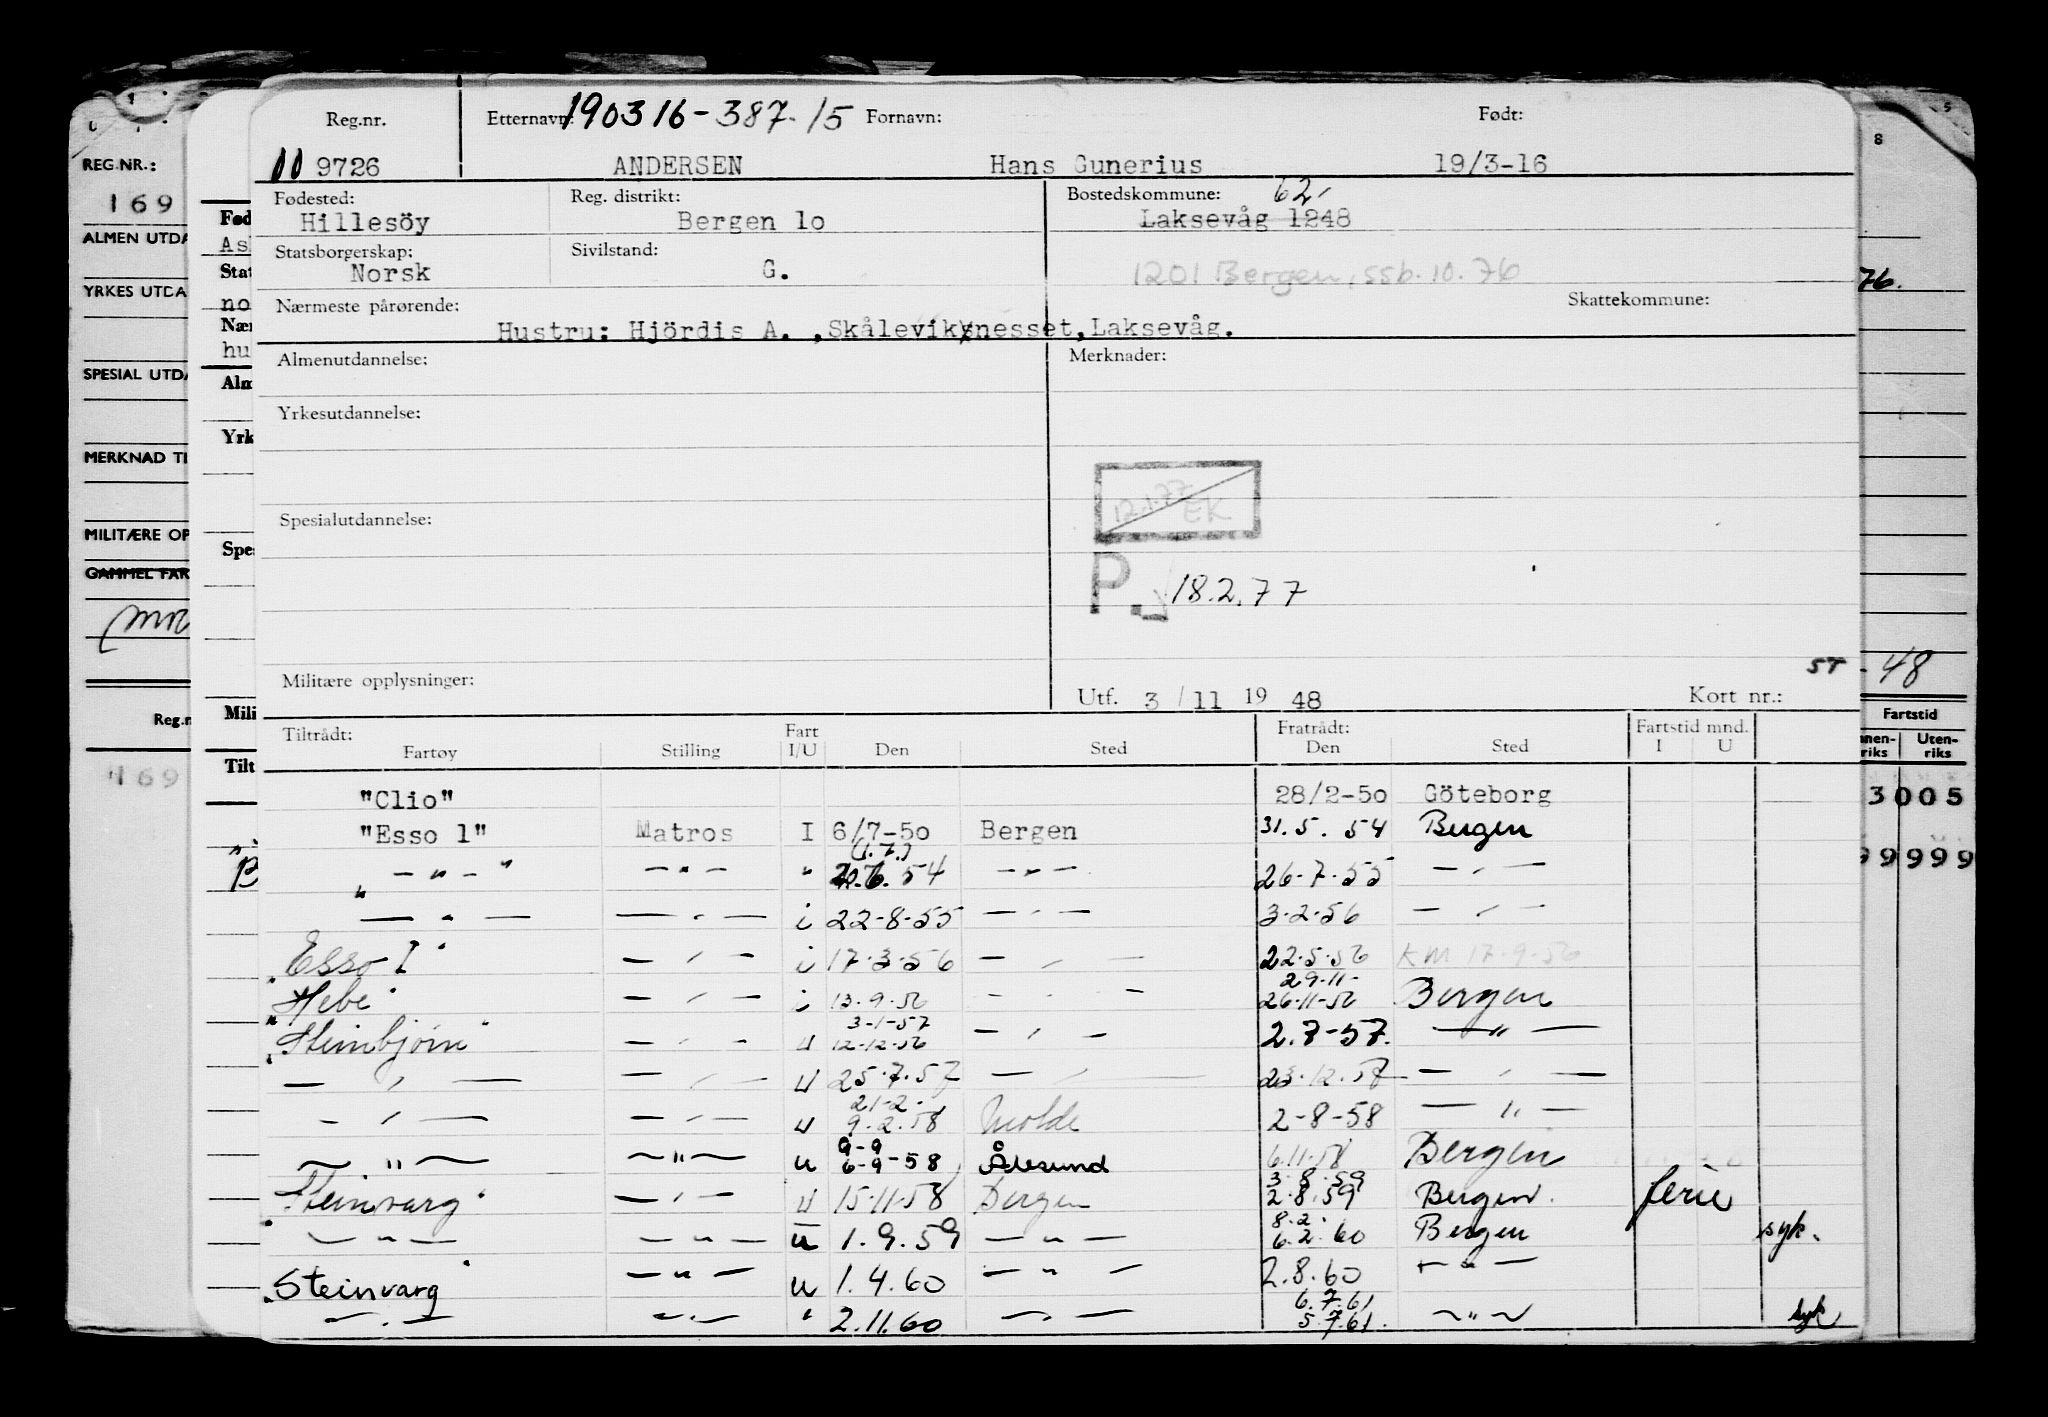 Reg.nr. Etternavn: 190316-387-15 Fornavn: Født:
9726 ANDERSEN Hans Gunerius 19/3-16
Fødested: Reg. distrikt: Bostedskommune: 62,
Hillesöy Bergen lo Laksevåg 1248
Statsborgerskap: Sivilstand:
Norsk G. 1201 Bergen, ssb. 10. 76
Nærmeste pårørende: Skattekommune:
Hustru: Hjördis A. ,Skåleviknesset,Laksevåg.
Almenutdannelse: Merknader:
Yrkesutdannelse:
12.1.77 EK
Spesialutdannelse:
P. 18.2.77
Militære opplysninger:
Utf. 3/11 19 48 Kort nr.:
Tiltrådt: Fart Fratrådt: Fartstid mnd.
Fartøy Stilling I/U Den Sted Den Sted I U
"Clio" 28/2-50 Göteborg
"Esso l" Matros I 6/7-50 Bergen 31.5.54 Bergen
(1.7.)
" — " — " — " — " 54 — " — 26-7-55 — " —
— " — — " — i 22-8-55 — " — 3-2-56 — " —
"Esso I" — " — i 17-3-56 — " — 22-5-56 KM 17-9-56
29-11-
"Hebe" — " — i 13.9.56 — " — 26-11-56 Bergen
3-1-57
"Steinbjørn" — " — u 12-12-56 — " — 2.7-57. — " —
— " — — " — u 25.7.57 — " — 23.12.57 — " —
21-2-
— " — — " — u 9.2.58 Molde 2-8-58 — " —
9-9
— " — — " — u 6-9-58 Ålesund 6.11.58 Bergen
3.8.59
"Steinvarg" — " — u 15-11-58 Bergen 2.8.59 Bergen. ferie
8.2.
— " — — " — u 1.9.59 — " — 6.2.60 Bergen syk.
"Steinvarg" — " — u 1.4.60 — " — 2.8.60 — " —
6.7.61
— " — — " — " 2.11.60 — " — 5.7.61. — " — syk
REG.NR.:
169
ALMEN UTDA
YRKES UTDA
SPESIAL UTDA
MERKNAD TI
MILITÆRE OP
GAMMEL FAR
Reg.n
169
Fød
As
Stat
no
Nær
hu
Alm
Yrk
Spes
Mili
Tilt
"B
5
8
76.
ST - 48
Fartstid
nnen-riks Uten-riks
3005
99999